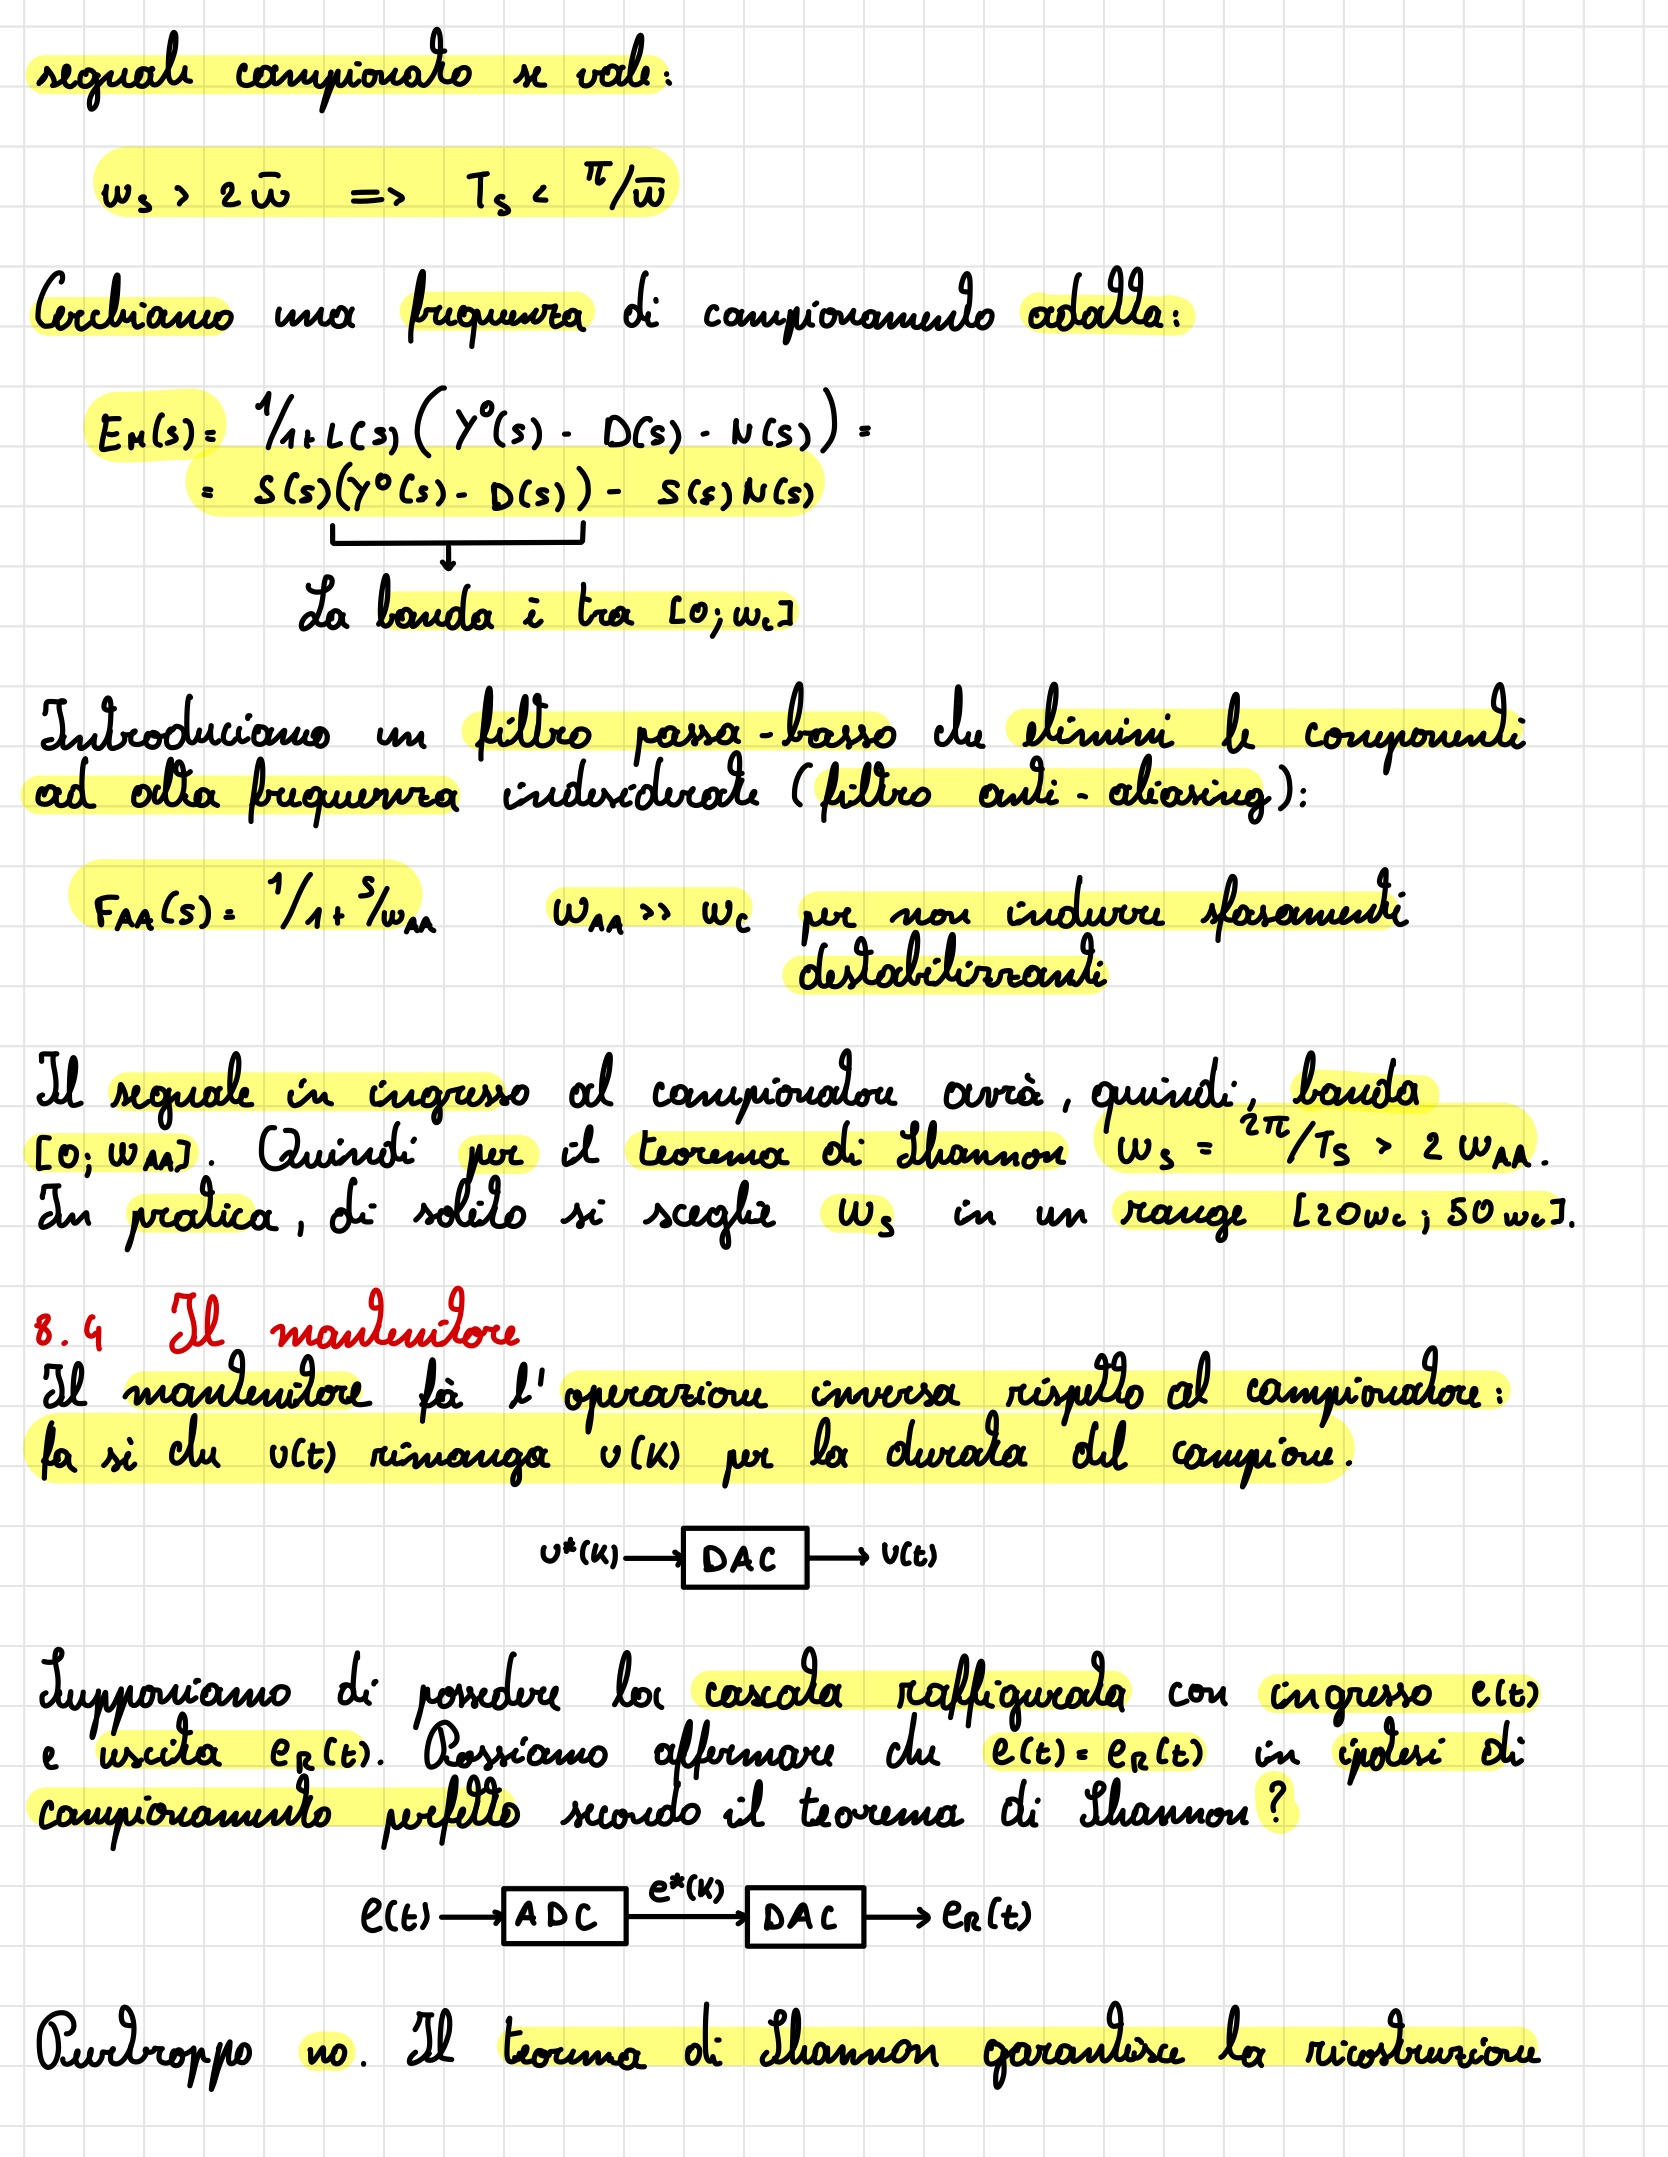 segnale campionato se vale:
ωs > 2ω̄ => Ts < π/ω̄
Cerchiamo una frequenza di campionamento adatta:
EM(s) = 1/1+L(s) (Y⁰(s) - D(s) - N(s)) =
= S(s)(Y⁰(s) - D(s)) - S(s)N(s)
La banda è tra [0; ωc]
Introduciamo un filtro passa-basso che elimini le componenti
ad alta frequenza indesiderate (filtro anti-aliasing):
FAA(s) = 1/1+ s/ωAA ωAA >> ωc per non indurre sfasamenti
destabilizzanti
Il segnale in ingresso al campionatore avrà, quindi, banda
[0; ωAA]. Quindi per il teorema di Shannon ωs = 2π/Ts > 2 ωAA.
In pratica, di solito si sceglie ωs in un range [20ωc; 50ωc].
8.4 Il mantenitore
Il mantenitore fà l'operazione inversa rispetto al campionatore:
fa si che u(t) rimanga u(K) per la durata del campione.
u*(K) DAC u(t)
Supponiamo di possedere la cascata raffigurata con ingresso e(t)
e uscita eR(t). Possiamo affermare che e(t) = eR(t) in ipotesi di
campionamento perfetto secondo il teorema di Shannon?
e(t) ADC e*(K) DAC eR(t)
Purtroppo no. Il teorema di Shannon garantisce la ricostruzione